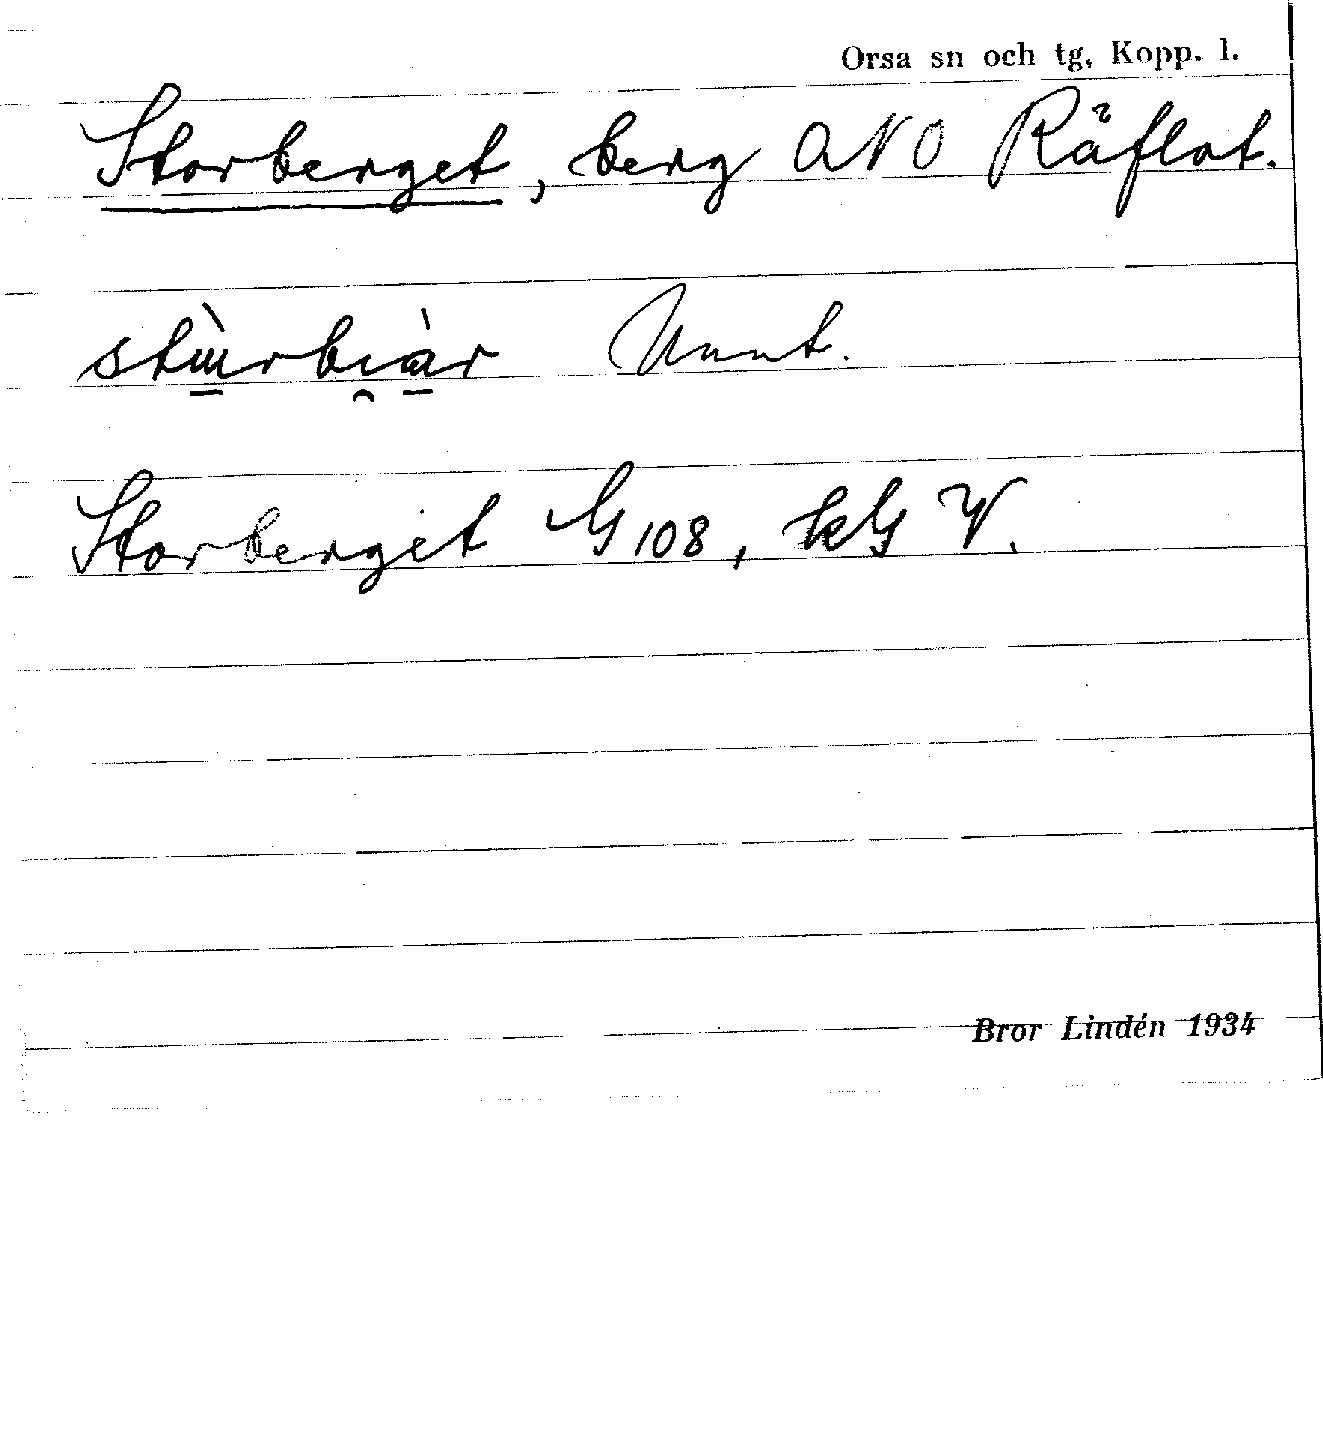 Orsa sn och tg, Kopp. l.
Storberget, berg ONO Räflot.
Storberget G 108, kG V.
Bror Lindén 1934